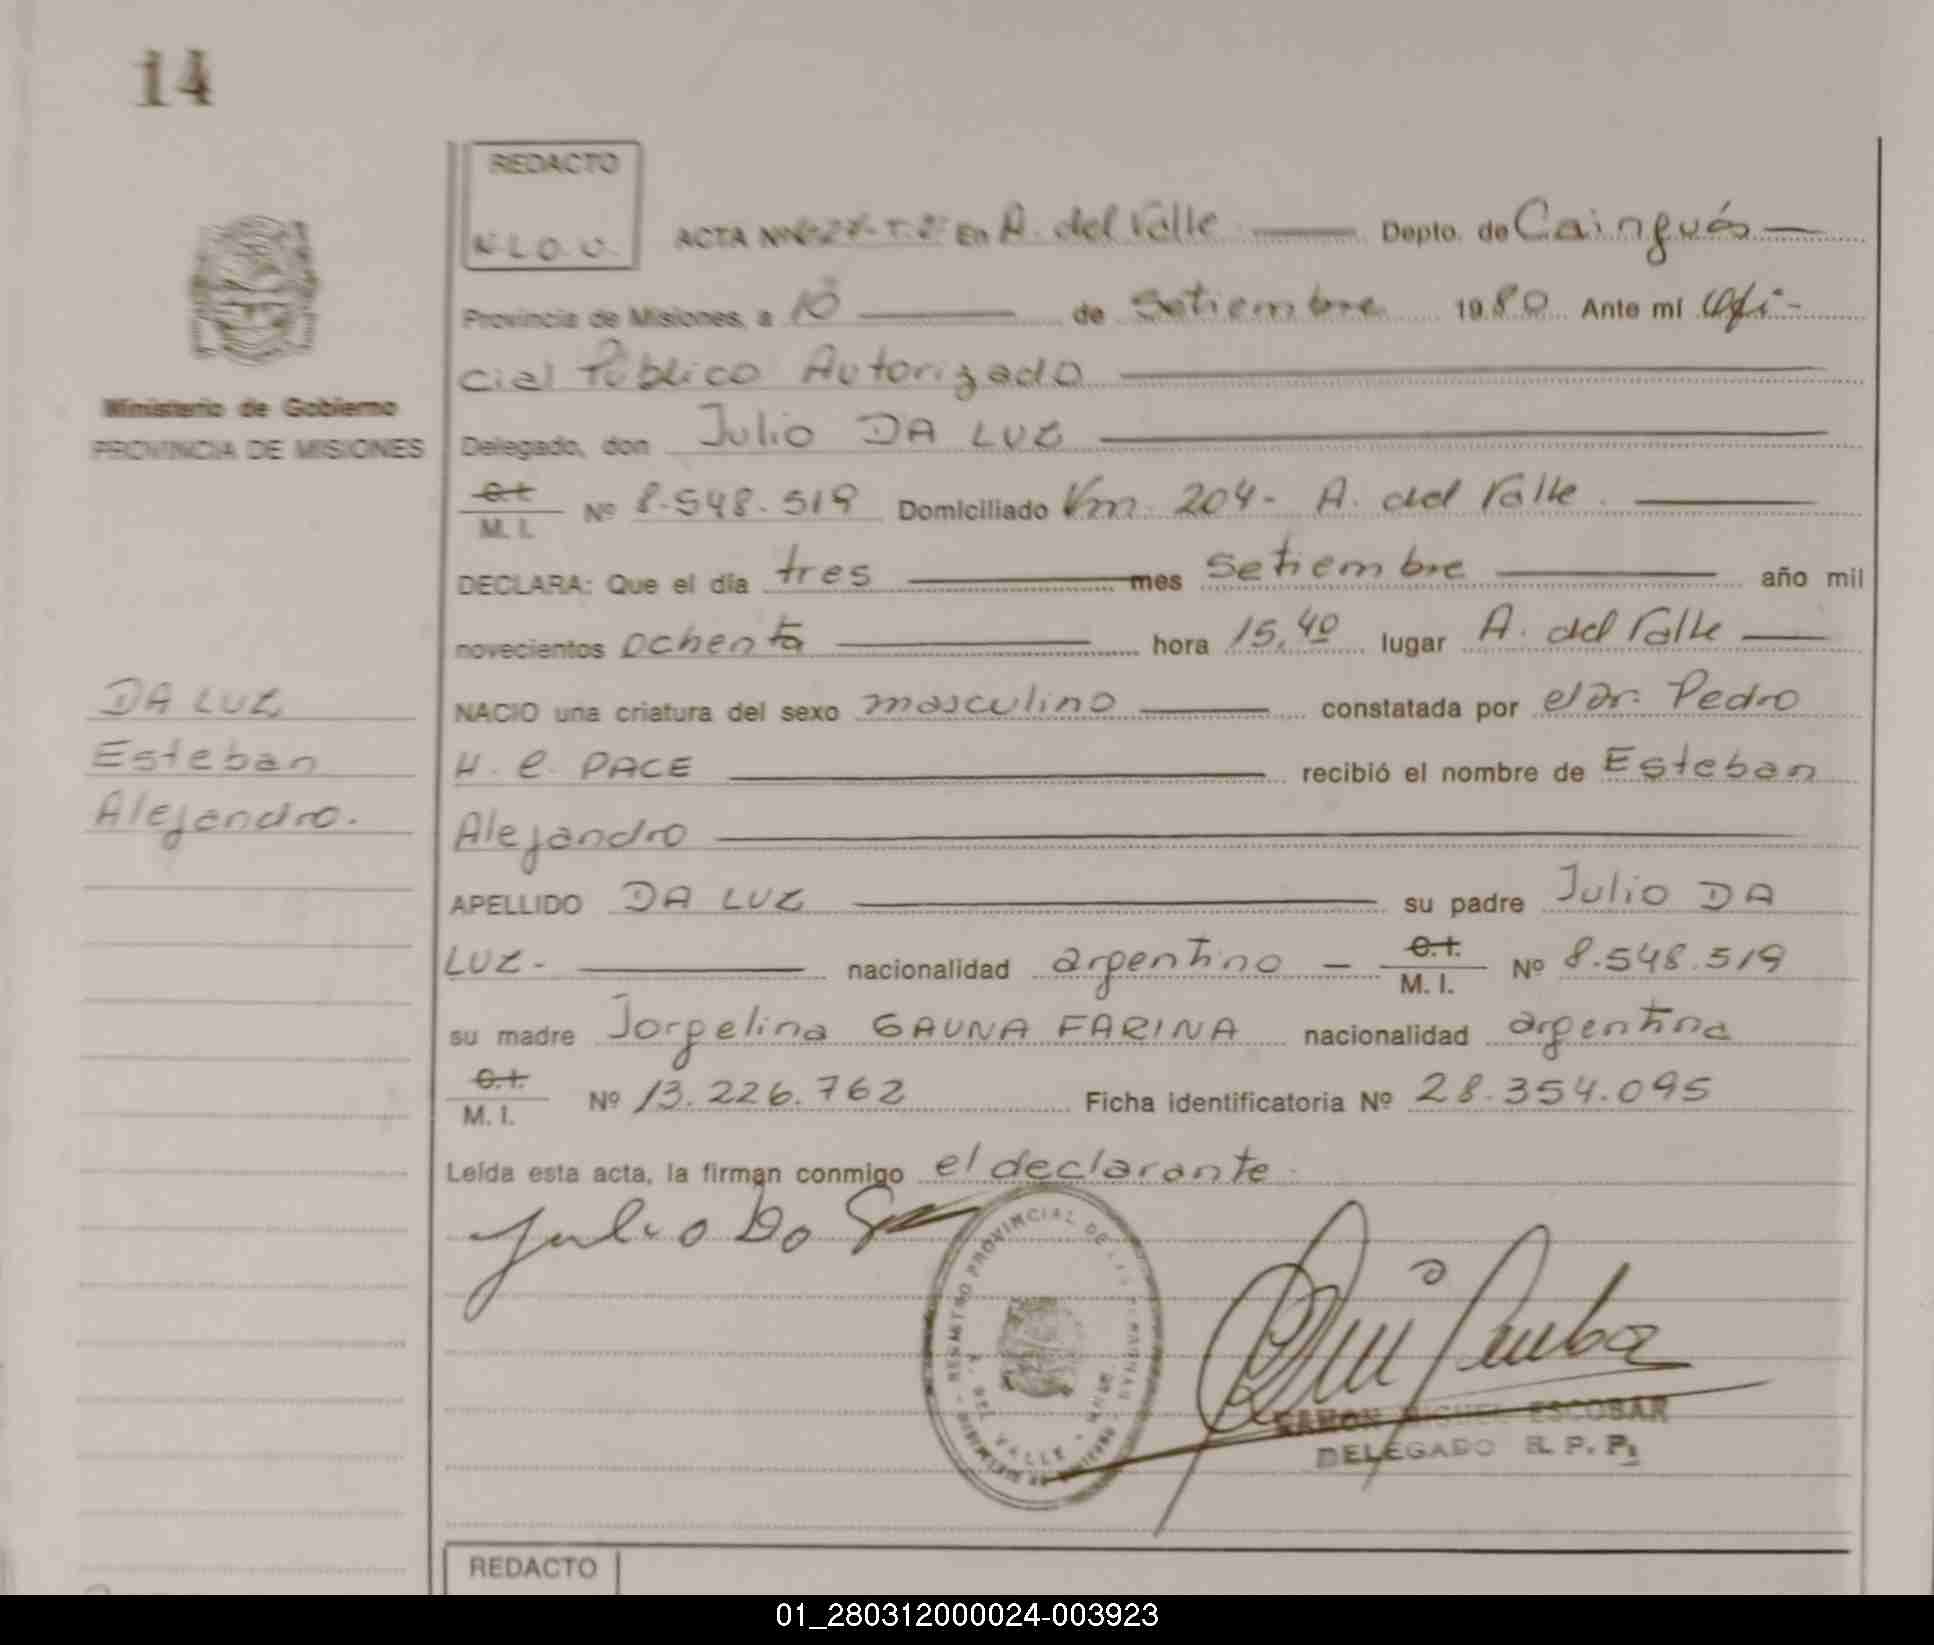 14
REDACTO
N.L.O.U.
ACTA Nº 27-T.2º En A. del Valle Depto. de Cainguás
Provincia de Misiones, a 10 de Setiembre 1980 Ante mí Ofi-
cial Público Autorizado
Ministerio de Gobierno
PROVINCIA DE MISIONES
Delegado, don Julio DA LUZ
C.I. M.I. Nº 8.548.519 Domiciliado Km. 204- A. del Valle
DECLARA: Que el día tres mes Setiembre año mil
novecientos ochenta hora 15,40 lugar A. del Valle
DA LUZ
Esteban
Alejandro.
NACIO una criatura del sexo masculino constatada por el Dr. Pedro
H. C. PACE recibió el nombre de Esteban
Alejandro
APELLIDO DA LUZ su padre Julio DA
LUZ- nacionalidad argentino - C.I. M.I. Nº 8.548.519
su madre Jorgelina GAUNA FARINA nacionalidad argentina
C.I. M.I. Nº 13.226.762 Ficha identificatoria Nº 28.354.095
Leída esta acta, la firman conmigo el declarante.
Julio Da
REGISTRO PROVINCIAL DE LAS PERSONAS
DEL VALLE
RAMON MIGUEL ESCOBAR
DELEGADO R. P. P.
REDACTO
01_280312000024-003923